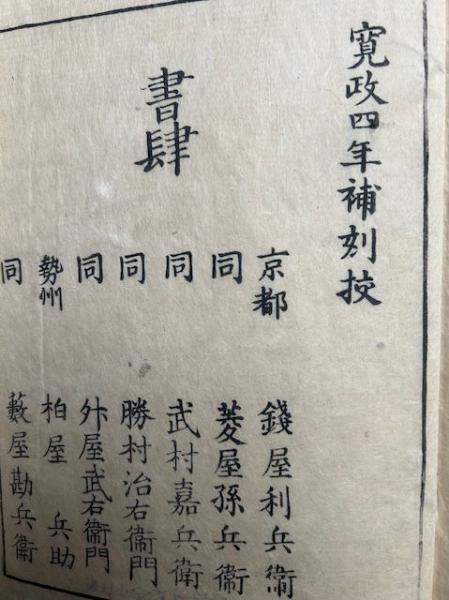 寛政四年補刻挍
書肆
京都 錢屋利兵衞
同 菱屋孫兵衞
同 武村嘉兵衛
同 勝村治右衞門
同 外屋武右衞門
勢州 柏屋兵助
同 藪屋勘兵衞